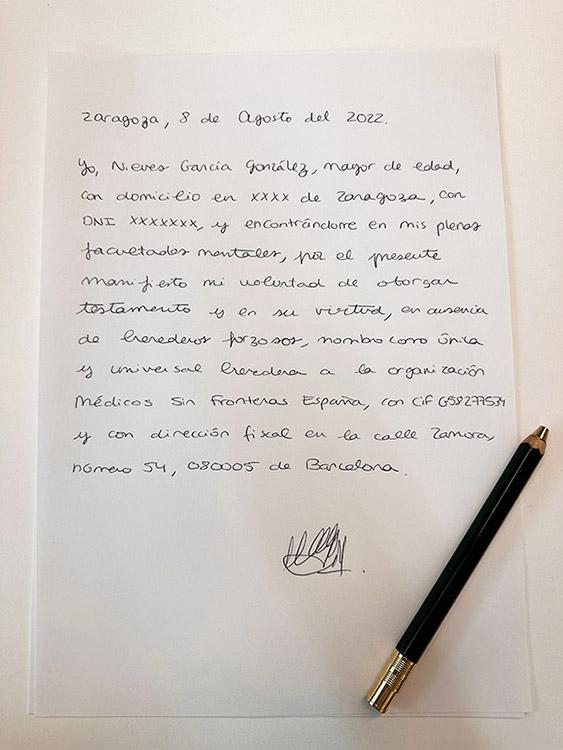 Zaragoza, 8 de Agosto del 2022.
Yo, Nieves García González, mayor de edad,
con domicilio en xxxx de Zaragoza, con
DNI xxxxxxx, y encontrándome en mis plenas
facultades mentales, por el presente
manifiesto mi voluntad de otorgar
testamento y en su virtud, en ausencia
de herederos forzosos, nombro como única
y universal heredera a la organización
Médicos Sin Fronteras España, con CIF G58277534
y con dirección fiscal en la calle Zamora,
número 54, 080005 de Barcelona.